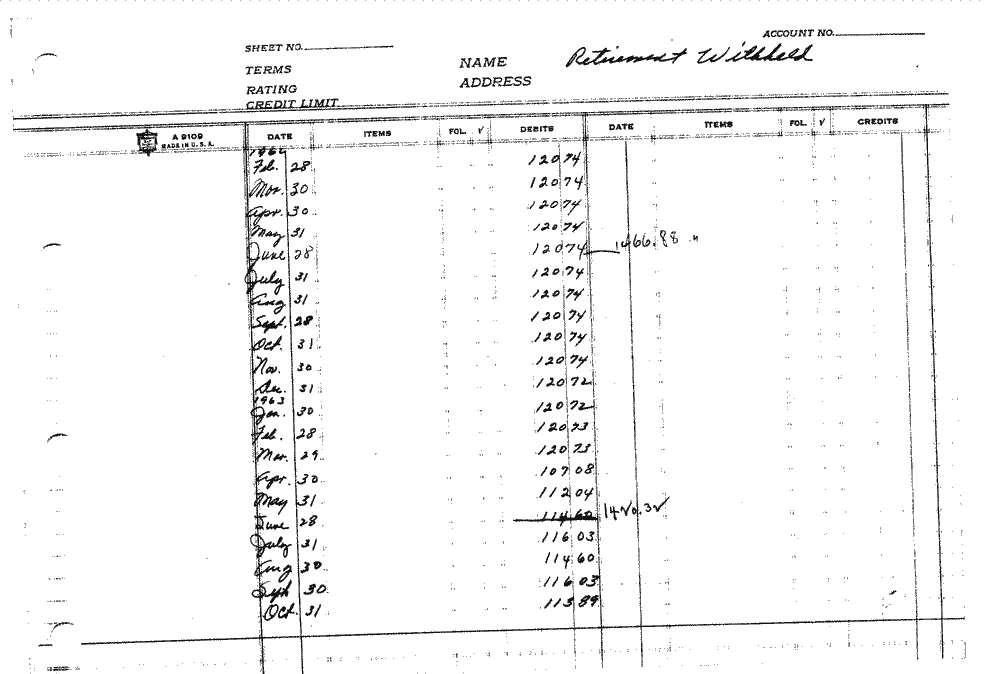 ACCOUNT NO.
SHEET NO.
NAME Retirement Withheld
TERMS
ADDRESS
RATING
CREDIT LIMIT
A 9109
MADE IN U.S.A.
DATE ITEMS FOL. √ DEBITS DATE ITEMS FOL. √ CREDITS
1962
Feb. 28 120 74
Mar. 30 120 74
Apr. 30 120 74
May 31 120 74
June 28 120 74 1466.88
July 31 120 74
Aug 31 120 74
Sept. 28 120 74
Oct. 31 120 74
Nov. 30 120 74
Dec. 31 120 72
1963
Jan. 30 120 72
Feb. 28 120 73
Mar. 29 120 73
Apr. 30 107 08
May 31 112 04
June 28 114 60 1420.32
July 31 116 03
Aug 30 114 60
Sept 30 116 03
Oct. 31 113 89